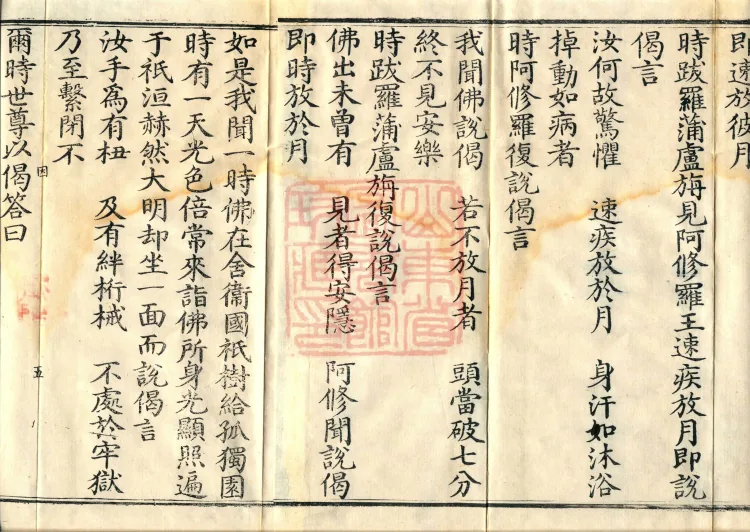 即速放彼月
時跋羅蒲盧旃見阿修羅王速疾放月即說
偈言
汝何故驚懼　速疾放於月　身汗如沐浴
掉動如病者
時阿修羅復說偈言
我聞佛說偈　若不放月者　頭當破七分
終不見安樂
時跋羅蒲盧旃復說偈言
佛出未曾有　見者得安隱　阿修聞說偈
即時放於月
如是我聞一時佛在舍衞國祇樹給孤獨園
時有一天光色倍常來詣佛所身光顯照遍
于祇洹赫然大明却坐一面而說偈言
汝手爲有杻　及有絆桁械　不處於牢獄
乃至繫閉不
因　五
爾時世尊以偈答曰